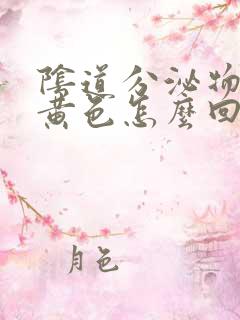 陰道分泌物
黃色怎麼回
月色